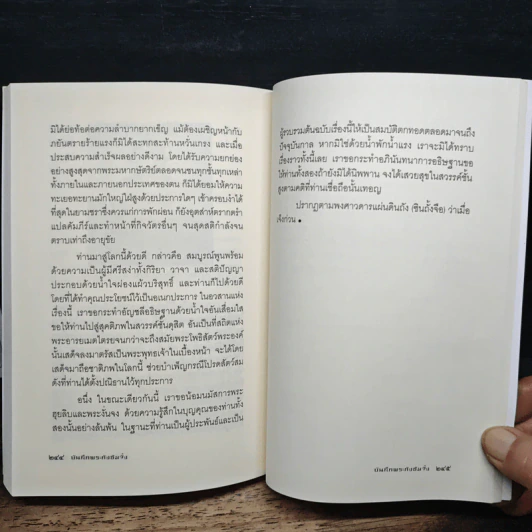 มิได้ย่อท้อต่อความลำบากยากเข็ญ แม้ต้องเผชิญหน้ากับ
ภยันตรายร้ายแรงก็มิได้สะทกสะท้านหวั่นเกรง และเมื่อ
ประสบความสำเร็จผลอย่างดีงาม โดยได้รับความยกย่อง
อย่างสูงสุดจากพระมหากษัตริย์ตลอดจนชนทุกชั้นทุกเหล่า
ทั้งภายในและภายนอกประเทศของตน ก็มิได้ยอมให้ความ
ทะเยอทะยานมักใหญ่ใฝ่สูงด้วยประการใดๆ เข้าครอบงำได้
ที่สุดในยามชราซึ่งควรแก่การพักผ่อน ก็ยังอุตส่าห์ตรากตรำ
แปลคัมภีร์และทำหน้าที่กิจวัตรอื่นๆ จนสุดสติกำลังจน
ตราบเท่าถึงอายุขัย
ท่านมาสู่โลกนี้ด้วยดี กล่าวคือ สมบูรณ์พูนพร้อม
ด้วยความเป็นผู้มีศรีสง่าทั้งกิริยา วาจา และสติปัญญา
ประกอบด้วยน้ำใจผ่องแผ้วบริสุทธิ์ และท่านก็ไปด้วยดี
โดยที่ได้ทำคุณประโยชน์ไว้เป็นอเนกประการ ในอวสานแห่ง
เรื่องนี้ เราขอกระทำอัญชลีอธิษฐานด้วยน้ำใจอันเลื่อมใส
ขอให้ท่านไปสู่สุคติภพในสวรรค์ชั้นดุสิต อันเป็นที่สถิตแห่ง
พระอารยเมตไตรยจนกว่าจะถึงสมัยพระโพธิสัตว์พระองค์
นั้นเสด็จลงมาตรัสเป็นพระพุทธเจ้าในเบื้องหน้า จะได้โดย
เสด็จมาถือชาติภพในโลกนี้ ช่วยบำเพ็ญกรณีโปรดสัตว์สม
ดังที่ท่านได้ตั้งปณิธานไว้ทุกประการ
อนึ่ง ในขณะเดียวกันนี้ เราขอน้อมนมัสการพระ
ฮุยลิบและพระงั่นจง ด้วยความรู้สึกในบุญคุณของท่านทั้ง
สองนั้นอย่างล้นพ้น ในฐานะที่ท่านเป็นผู้ประพันธ์และเป็น
๒๔๔ บันทึกพระถังซัมจั๋ง
ผู้รวบรวมต้นฉบับเรื่องนี้ให้เป็นสมบัติตกทอดตลอดมาจนถึง
ปัจจุบันกาล หากมิใช่ด้วยน้ำพักน้ำแรง เราจะมิได้ทราบ
เรื่องราวทั้งนี้เลย เราขอกระทำอภินันทนาการอธิษฐานขอ
ให้ท่านทั้งสองถ้ายังมิได้นิพพาน จงได้เสวยสุขในสวรรค์ชั้น
สูงตามคติที่ท่านเชื่อถือนั้นเทอญ
ปรากฏตามพงศาวดารแผ่นดินถัง (ซินถั่งจือ) ว่าเมื่อ
เจ็งก่วน
บันทึกพระถังซัมจั๋ง ๒๔๕